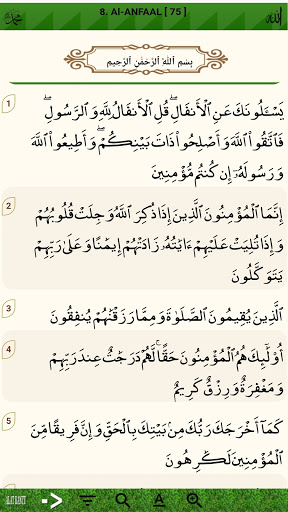 8. Al-ANFAAL [ 75 ]
بِسْمِ ٱللَّهِ ٱلرَّحْمَٰنِ ٱلرَّحِيمِ
1
يَسْـَٔلُونَكَ عَنِ ٱلْأَنفَالِ ۖ قُلِ ٱلْأَنفَالُ لِلَّهِ وَٱلرَّسُولِ ۖ
فَٱتَّقُوا۟ ٱللَّهَ وَأَصْلِحُوا۟ ذَاتَ بَيْنِكُمْ ۖ وَأَطِيعُوا۟ ٱللَّهَ
وَرَسُولَهُۥٓ إِن كُنتُم مُّؤْمِنِينَ
2
إِنَّمَا ٱلْمُؤْمِنُونَ ٱلَّذِينَ إِذَا ذُكِرَ ٱللَّهُ وَجِلَتْ قُلُوبُهُمْ
وَإِذَا تُلِيَتْ عَلَيْهِمْ ءَايَٰتُهُۥ زَادَتْهُمْ إِيمَٰنًا وَعَلَىٰ رَبِّهِمْ
يَتَوَكَّلُونَ
3
ٱلَّذِينَ يُقِيمُونَ ٱلصَّلَوٰةَ وَمِمَّا رَزَقْنَٰهُمْ يُنفِقُونَ
4
أُو۟لَٰٓئِكَ هُمُ ٱلْمُؤْمِنُونَ حَقًّا ۚ لَّهُمْ دَرَجَٰتٌ عِندَ رَبِّهِمْ
وَمَغْفِرَةٌ وَرِزْقٌ كَرِيمٌ
5
كَمَآ أَخْرَجَكَ رَبُّكَ مِنۢ بَيْتِكَ بِٱلْحَقِّ وَإِنَّ فَرِيقًا مِّنَ
ٱلْمُؤْمِنِينَ لَكَٰرِهُونَ